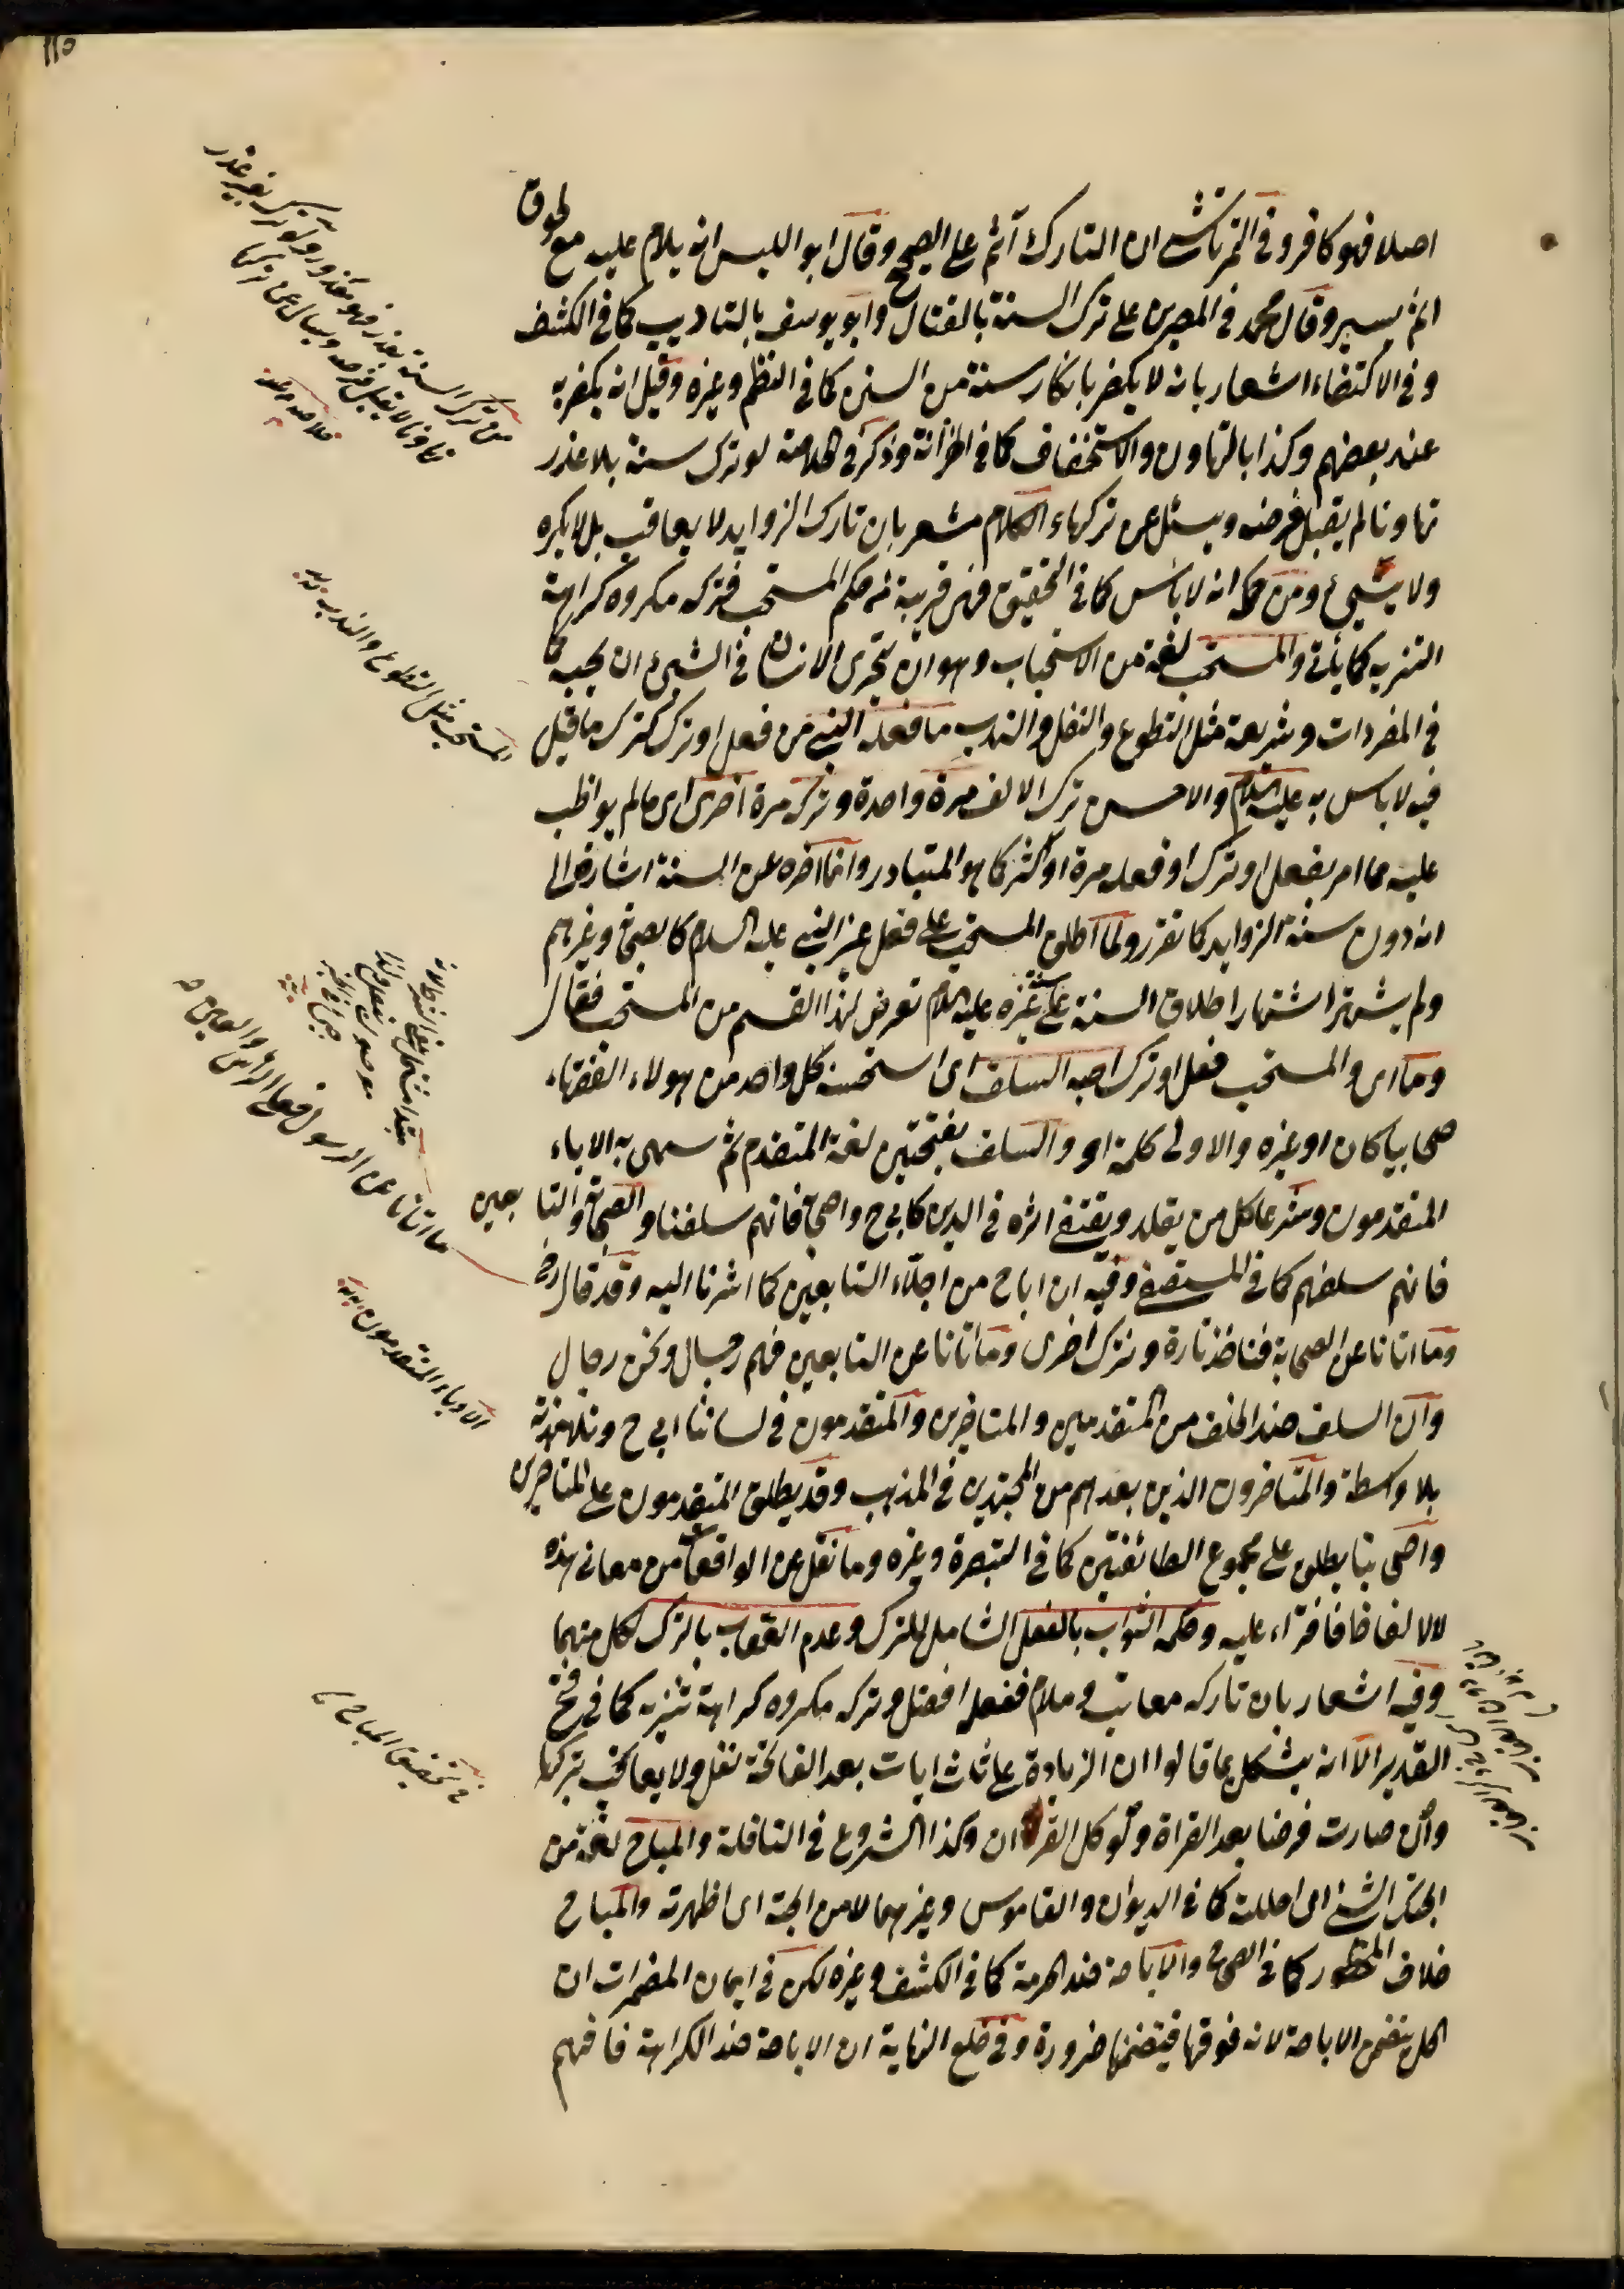 اصلا فهو كافر وفى التمرتاشى ان التارك آثم على الصحيح وقال ابو الليس انه يلام عليه مع لحوق
اثم يسير وقال محمد فى المصرين على ترك السنة بالقتال وابو يوسف بالتاديب كما فى الكشف
وفى الاكتفاء اشعار بانه لا يكفر بانكار سنة من السنن كما فى النظم وغيره وقيل انه يكفر به
عند بعضهم وكذا بالتهاون والاستخفاف كما فى الخزانة وذكر فى الخلاصة لو ترك سنة بلا عذر
تهاونا لم يقبل فرضه ويسئل عن تركها والكلام مشعر بان تارك الزوايد لا يعاقب بل لا يكره
ولا يسيئ ومن حكمها انه لا باس كما فى التحقيق فهى قريبة من حكم المستحب فتركه مكروه كراهة
التنزيه كما ياتى والمستحب لغة من الاستحباب وهو ان يتحرى الانسان فى الشئ ان يحبه كما
فى المفردات وشريعة مثل التطوع والنفل والندب ما فعله النبى من فعل او ترك كترك ما قيل
فيه لا باس به عليه السلام والاحسن ترك الالف مرة واحدة وترك مرة اخرى اى ما لم يواظب
عليه مما امر بفعل او ترك او فعله مرة او اكثر كما هو المتبادر وانما اخره عن السنة اشارة الى
انه دون سنة الزوايد كما تقرر ولما اطلق المستحب على فعل غير النبى عليه السلام كالصحابى وغيرهم
ولم يشتهر اشتهار اطلاق السنة على غيره عليه السلام تعرض لهذا القسم من المستحب فقال
وما اى والمستحب فعل او ترك احبه السلف اى استحسنه كل واحد من هولاء الفقهاء
صحابيا كان او غيره والاولى كلمة او والسلف بفتحتين لغة المتقدم ثم سمى به الاباء
المتقدمون وشرعا كل من يقلد ويقتفى اثره فى الدين كابى ح واصحابه فانهم سلفنا والصحابة والتابعين
فانهم سلفهم كما فى المستصفى وفيه ان اباح من اجلاء التابعين كما اشرنا اليه وقد قال رضى
وما اتانا عن الصحابة فناخذ تارة ونترك اخرى وما اتانا عن التابعين فهم رجال ونحن رجال
وان السلف ضد الخلف من المتقدمين والمتاخرين والمتقدمون فى لساننا ابى ح وتلامذته
بلا واسطة والمتاخرون الذين بعدهم من المجتهدين فى المذهب وقد يطلق المتقدمون على المتاخرين
واصحابنا يطلق على مجموع الطائفتين كما فى التبصرة وغيره وما نقل عن الواقعات من معانى هذه
الالفاظ فافتراء عليه وحكمه الثواب بالفعل الشامل للترك وعدم العقاب بالترك لكل منهما
وفيه اشعار بان تاركه معاتب وملام ففعله افضل وتركه مكروه كراهة تنزيه كما فى فتح
القدير الا انه يشكل بما قالوا ان الزيادة على ثلث ايات بعد الفاتحة نفل ولا يعاقب بتركها
وان صارت فرضا بعد القراة ولو كل القران وكذا الشروع فى النافلة والمباح لغة من
ابحتك الشئ اى احللته كما فى الديوان والقاموس وغيرهما لا من اباحه اى اظهرته والمباح
خلاف المحظور كما فى الصحاح والاباحة ضد الحرمة كما فى الكشف وغيره لكن فى ايمان المضمرات ان
الحل يتضمن الاباحة لانه فوقها فيتضمنها ضرورة وفى خلع النهاية ان الاباحة ضد الكراهة فافهم
من ترك السنة بعذر فهو معذور ولو ترك بغير عذر
تهاونا لا يقبل فرضه ويسال عن تركها
خلاصه
المستحب مثل التطوع والندب
ما اتانا عن الرسول فعلى الراس والعين
الاباء المتقدمون
فى تحقيق المباح